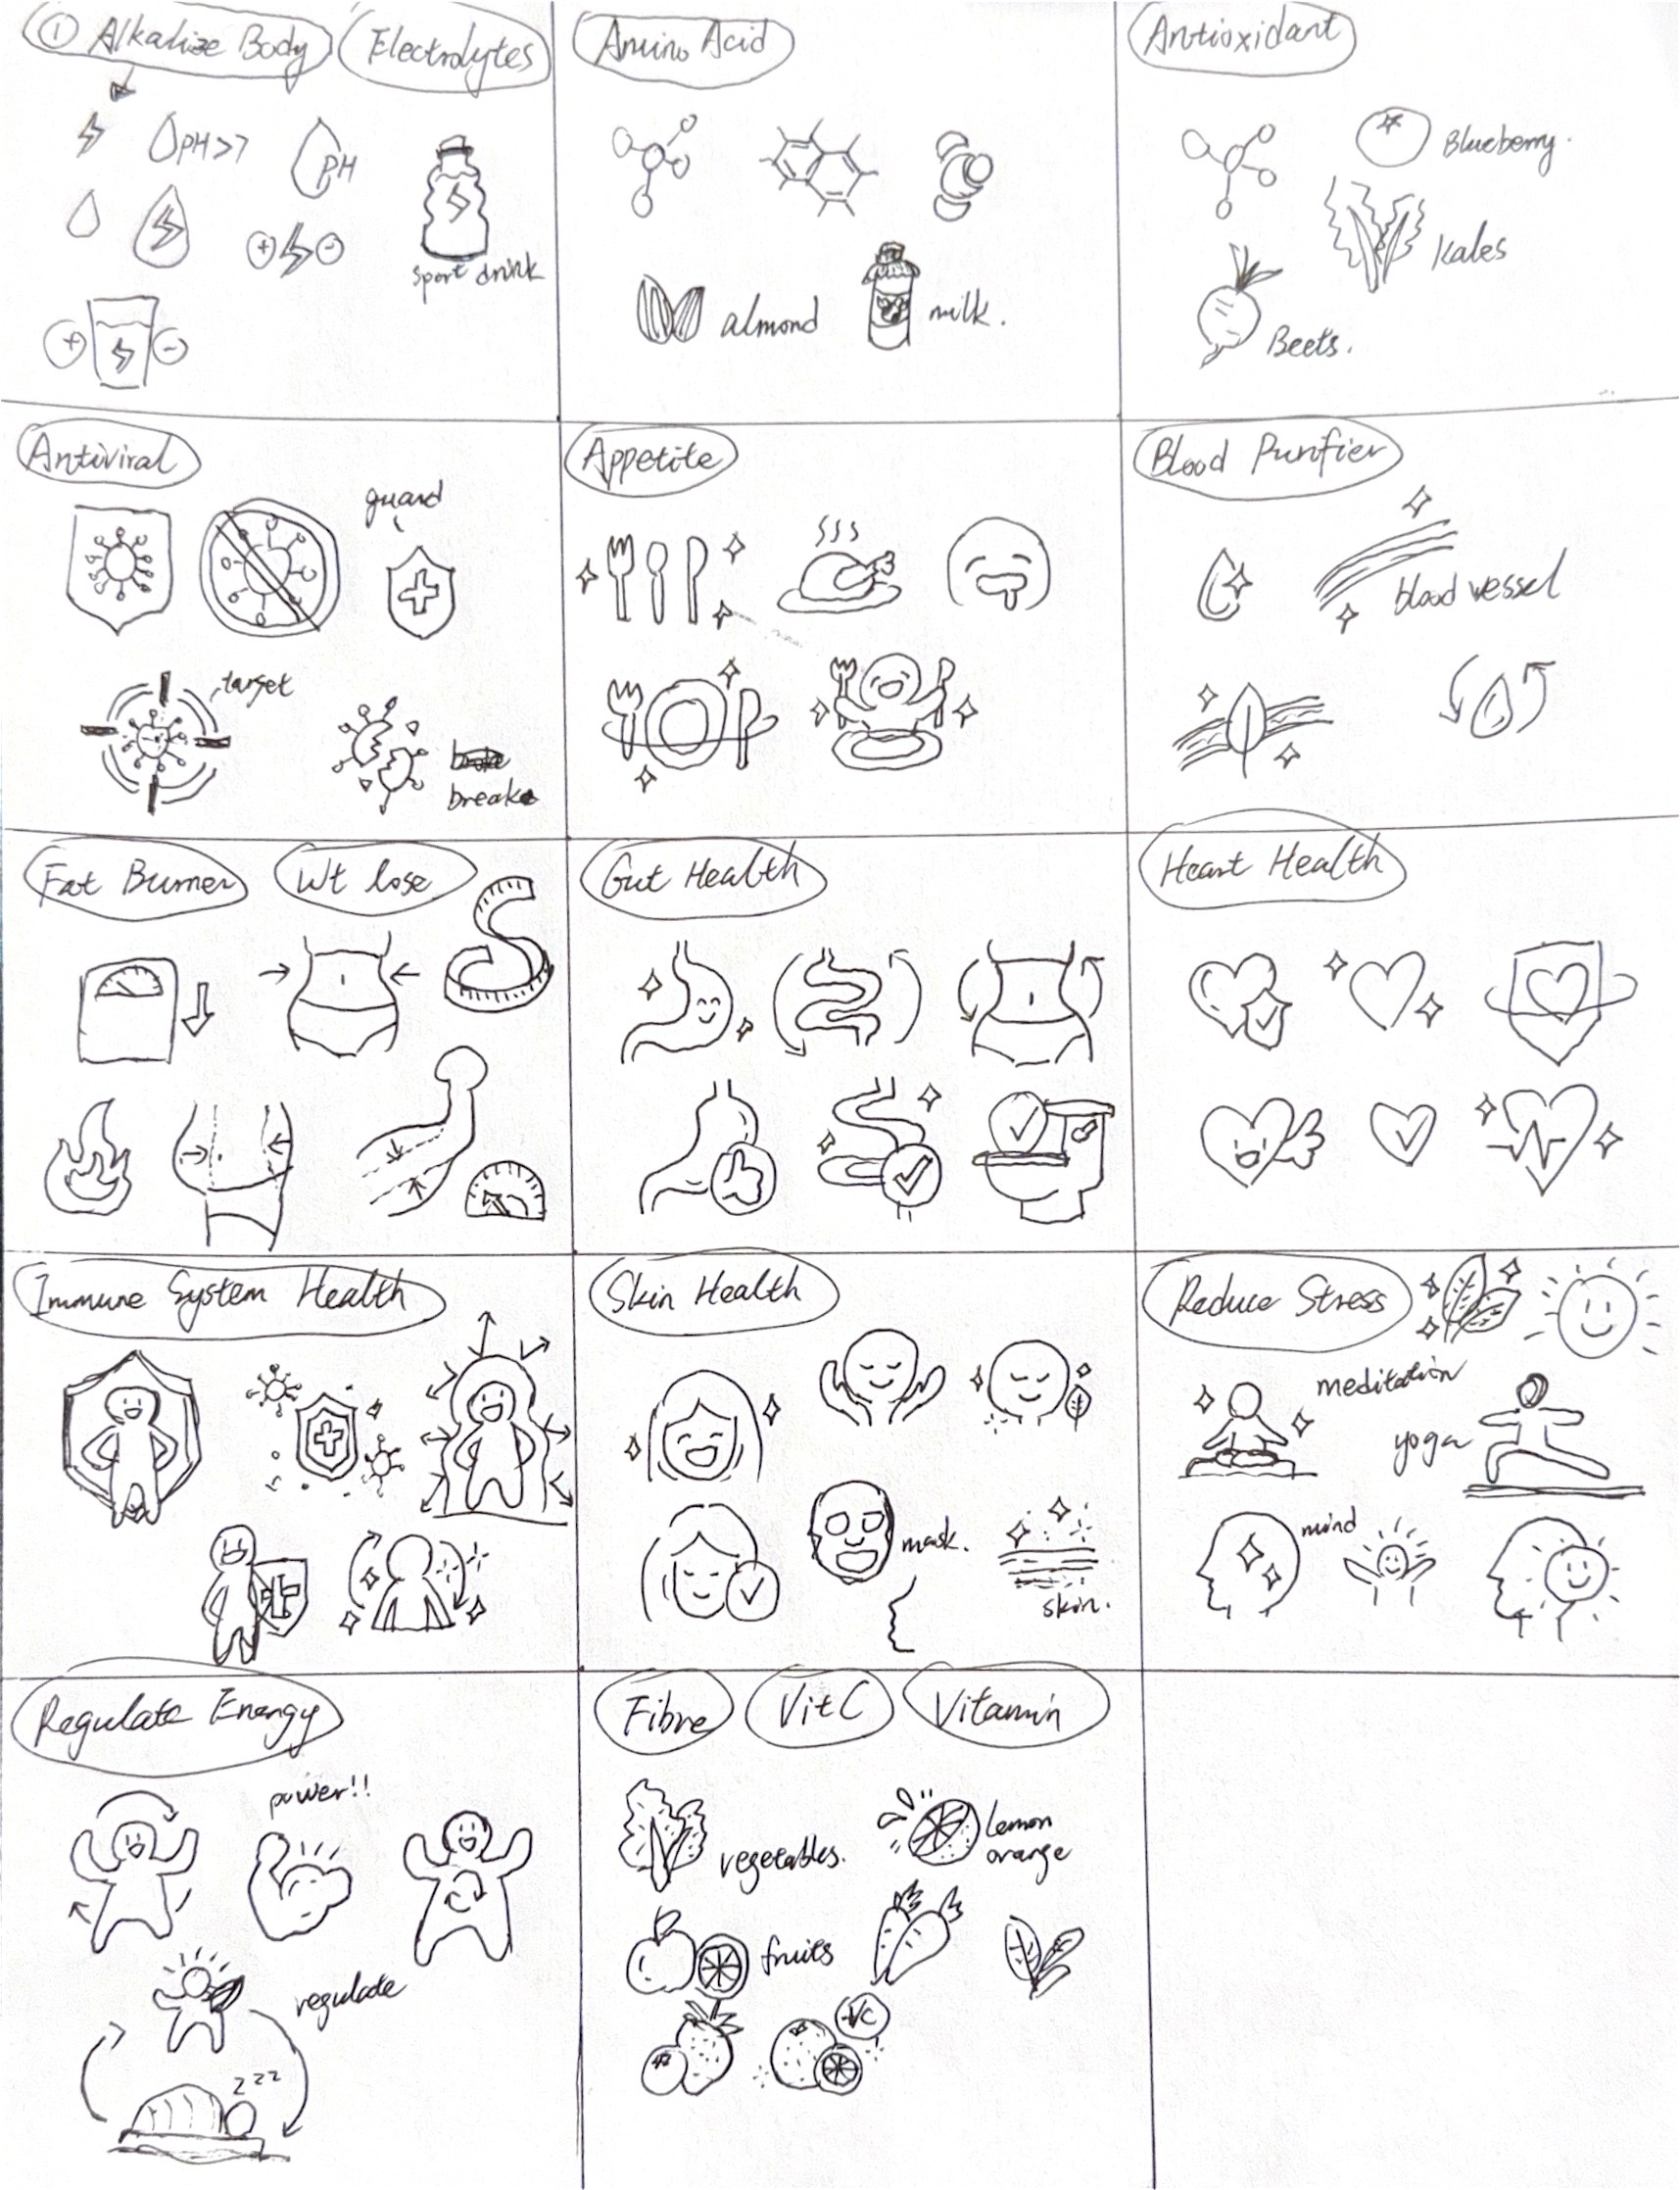 ① Alkalize Body
Electrolytes
PH>7
PH
sport drink
Amino Acid
almond
milk.
Antioxidant
Blueberry.
Kales
Beets.
Antiviral
guard
target
break
Appetite
Blood Purifier
blood vessel
Fat Burner
Wt lose
Gut Health
Heart Health
Immune System Health
Skin Health
mask.
skin.
Reduce Stress
meditation
yoga
mind
Regulate Energy
power!!
regulate
zzz
Fibre
Vit C
Vitamin
vegetables.
Lemon
orange
fruits
VC